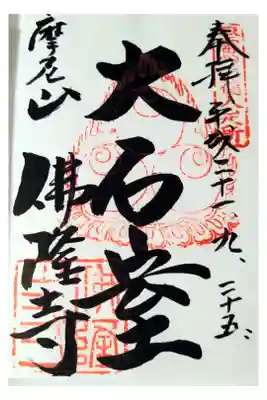 奉拝 平成二十一、九、二十五、
大石堂
摩尼山
佛隆寺